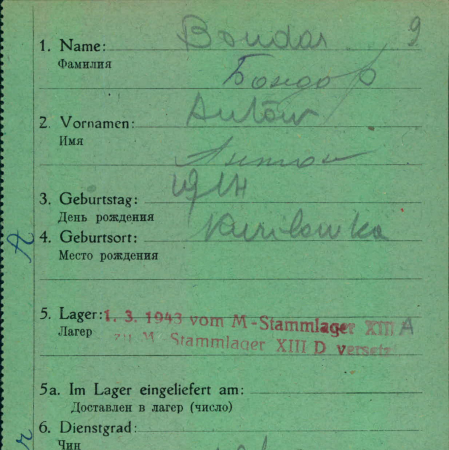 9
1. Name: Bondar
Фамилия
Бондар
2. Vornamen: Antòn
Имя
Антон
3. Geburtstag:
День рождения
4. Geburtsort: Kurilowka
Место рождения
5. Lager: 1. 3. 1943 vom M-Stammlager XIII A
Лагер
zu M-Stammlager XIII D versetzt
5a. Im Lager eingeliefert am:
Доставлен в лагер (число)
6. Dienstgrad:
Чин